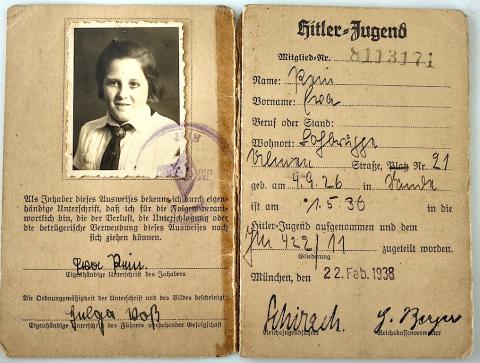 Als Inhaber dieses Ausweises bekenne ich durch eigen-
händige Unterschrift, daß ich für die Folgen verant-
wortlich bin, die der Verlust, die Unterschlagung oder
die betrügerische Verwendung dieses Ausweises nach
sich ziehen können.
Eigenhändige Unterschrift des Inhabers
Die Ordnungsmäßigkeit der Unterschrift und des Bildes bescheinigt:
Helga Voß
Eigenhändige Unterschrift des Führers vorstehender Gefolgschaft
Hitler-Jugend
Mitglied-Nr. 8113171
Name:
Vorname:
Beruf oder Stand:
Wohnort: Lohbrügge
Straße, Platz Nr. 21
geb. am 9.9.26 in
ist am 1.5.36 in die
Hitler-Jugend aufgenommen und dem
JM 422/11 zugeteilt worden.
Gliederung
München, den 22. Feb. 1938
Schirach.
Reichsjugendführer Reichskassenverwalter